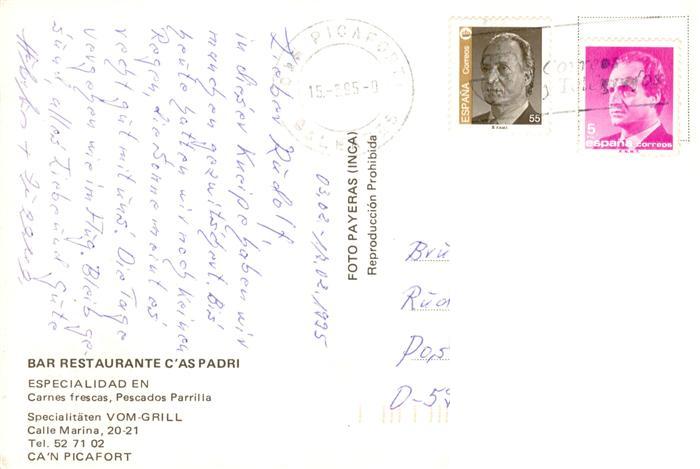 Lieber Rudolf,
in dieser Kneipe haben wir
manchen gezwitschert. Bis
heute hatten wir noch keinen
Regen, die Sonne meint es
recht gut mit uns. Die Tage
vergehen wie im Flug. Bleib ge-
sund, alles Liebe und Gute
03.02.-17.02.1995
FOTO PAYERAS (INCA)
Reproducción Prohibida
PICAFORT
15.-2.95-0
ESPAÑA
Correos
55
5
PTA
españa correos
Correos
y Telegrafos
Brü
Rüd
Po,s
D-5
BAR RESTAURANTE C'AS PADRI
ESPECIALIDAD EN
Carnes frescas, Pescados Parrilla
Specialitäten VOM-GRILL
Calle Marina, 20-21
Tel. 52 71 02
CA'N PICAFORT